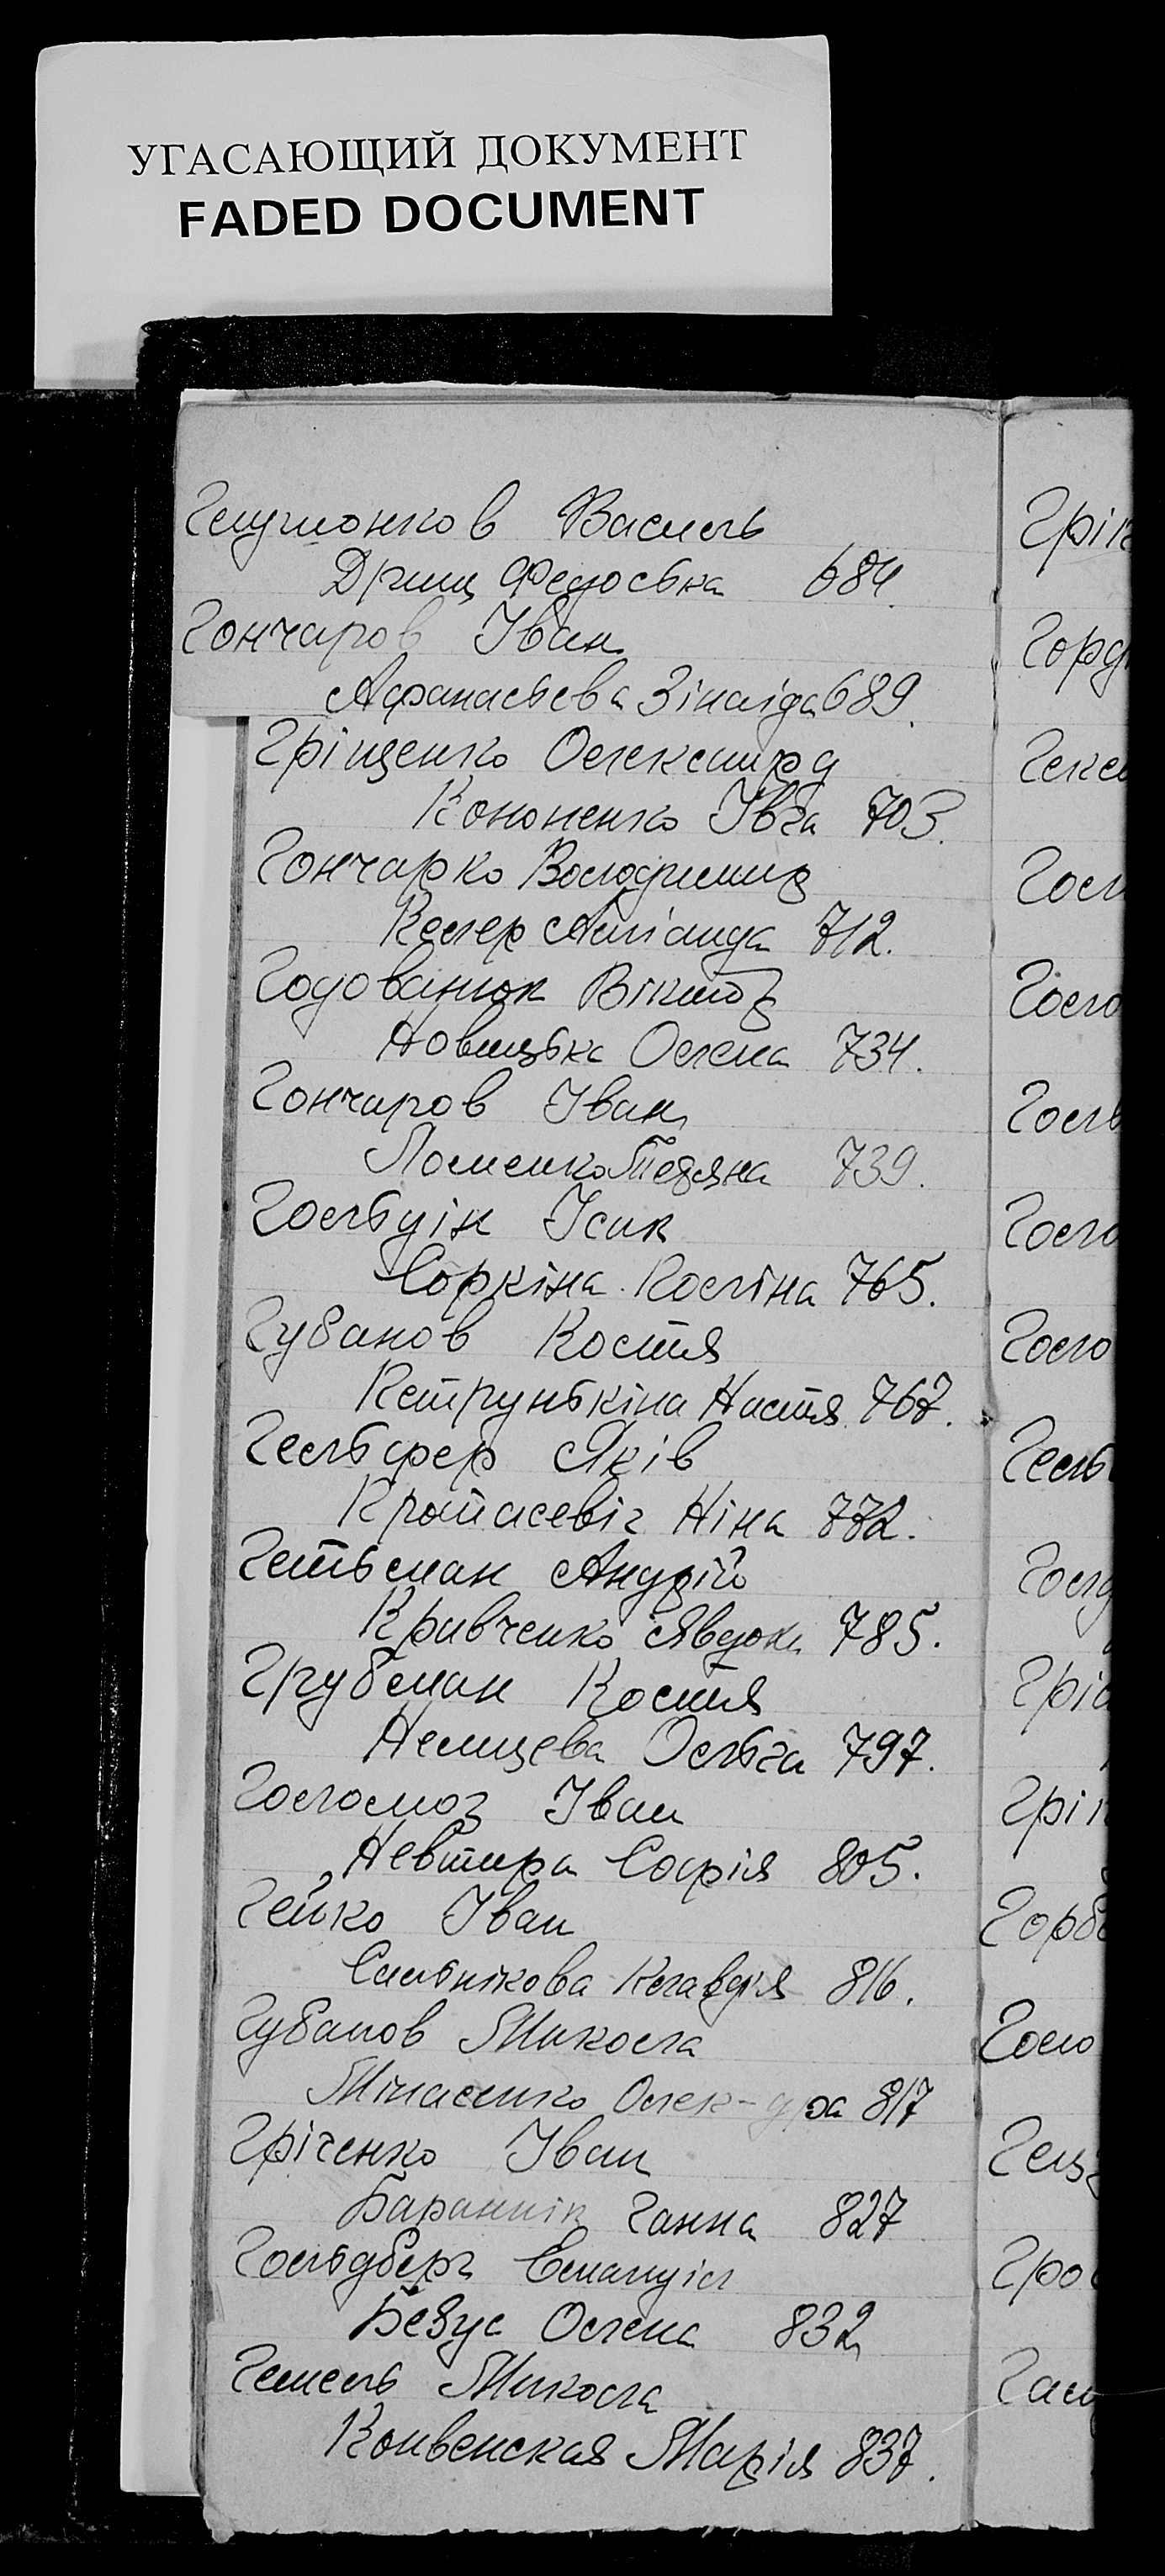 УГАСАЮЩИЙ ДОКУМЕНТ
FADED DOCUMENT
Василь
684
Гончаров Іван
Афанасьєва Зінаіда 689.
Гріщенко Олександ
Кононенко Івга 703.
Гончарко Володимир
Келер 712.
Годованюк Віктор
Новицька Олена 734.
Гончаров Іван
Ломенко Тетяна 739.
Гольдін Ісак
Соркіна Поліна 765.
Губанов Костя
Петрунькіна Настя 767.
Гельфер Яків
Протасевіч Ніна 772.
Гетьман Андрій
Кривченко Явдоки 785.
Грубман Костя
Немцева Ольга 797.
Голомоз Іван
Невтира Софія 805.
Гейко Іван
Сальнікова Клавдія 816.
Губанов Микола
Мінасенко Олек-дра 817
Гріченко Іван
Баранник Ганна 827
Гольдберг Емануіл
Безус Олена 832
Гемель Микола
Марія 837.
Грін
Горд
Гол
Голо
Голь
Голо
Голо
Гель
Голд
Грі
Горб
Голо
Гро